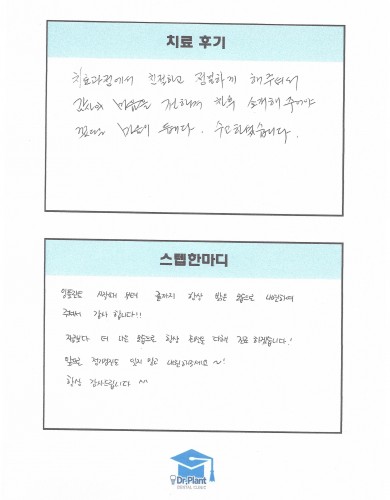 치료 후기
치료과정에서 친절하고 정성하게 해주셔서
감사의 마음을 전하며 차후 소개해 주어야
마음이 듭니다. 수고하셨습니다.
스텝한마디
임플란트 시작때 부터 끝까지 항상 밝은 모습으로 내원하여
주셔서 감사 합니다!!
지금보다 더 나은 모습으로 항상 최선을 다해 진료 하겠습니다!
앞으로 정기검진도 잊지 말고 내원해주세요~!
항상 감사드립니다 ^^
Dr.Plant
DENTAL CLINIC